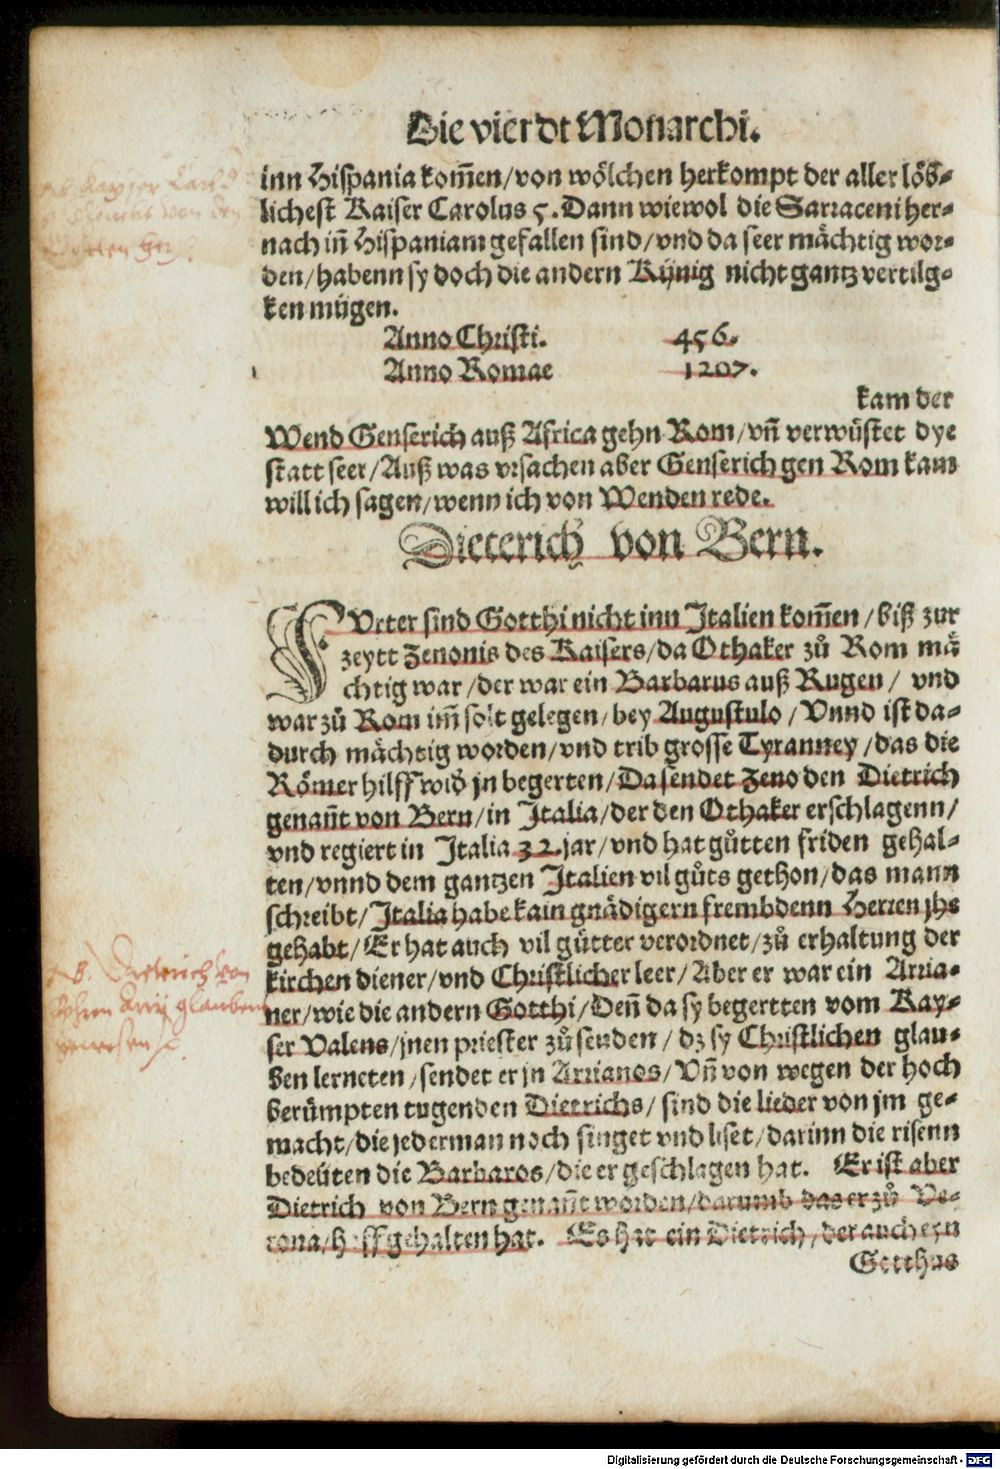 Die vierdt Monarchi.
inn Hispania kom̃en/von wölchen herkompt der aller löb-
lichest Kaiser Carolus 5. Dann wiewol die Sarraceni her-
nach iñ Hispaniam gefallen sind/vnd da seer mächtig wor-
den/habenn sy doch die andern Künig nicht gantz vertilg-
ken mügen.
Anno Christi. 456.
Anno Romae 1207.
kam der
Wend Genserich auß Africa gehn Rom/vñ verwüstet dye
statt seer/Auß was vrsachen aber Genserich gen Rom kam
will ich sagen/wenn ich von Wenden rede.
Dieterich von Bern.
FVrter sind Gotthi nicht inn Italien kom̃en/biß zur
zeytt Zenonis des Kaisers/da Othaker zů Rom mä
chtig war/der war ein Barbarus auß Rugen/ vnd
war zů Rom im̃ solt gelegen/bey Augustulo/Vnnd ist da-
durch mächtig worden/vnd trib grosse Tyranney/das die
Römer hilff wid̾ jn begerten/Da sendet Zeno den Dietrich
genañt von Bern/in Italia/der den Othaker erschlagenn/
vnd regiert in Italia 32. jar/vnd hat gůtten friden gehal-
ten/vnnd dem gantzen Italien vil gůts gethon/das mann
schreibt/Italia habe kain gnädigern frembdenn Herren jhe
gehabt/Er hat auch vil gütter verordnet/zů erhaltung der
kirchen diener/vnd Christlicher leer/Aber er war ein Arria-
ner/wie die andern Gotthi/Deñ da sy begertten vom Kay-
ser Valens/jnen priester zů senden/dz sy Christlichen glau-
ben lerneten/sendet er jn Arrianos/Vñ von wegen der hoch
berümpten tugenden Dietrichs/sind die lieder von jm ge-
macht/die jederman noch singet vnd liset/darinn die risenn
bedeüten die Barbaros/die er geschlagen hat. Er ist aber
Dietrich von Bern genañt worden/darumb das er zů Ve-
rona/hoff gehalten hat. Es hat ein Dietrich/der auch eyn
Gotthus
NB. Dietrich von
Bern Arrij glaubens
gewesen
Digitalisierung gefördert durch die Deutsche Forschungsgemeinschaft - DFG